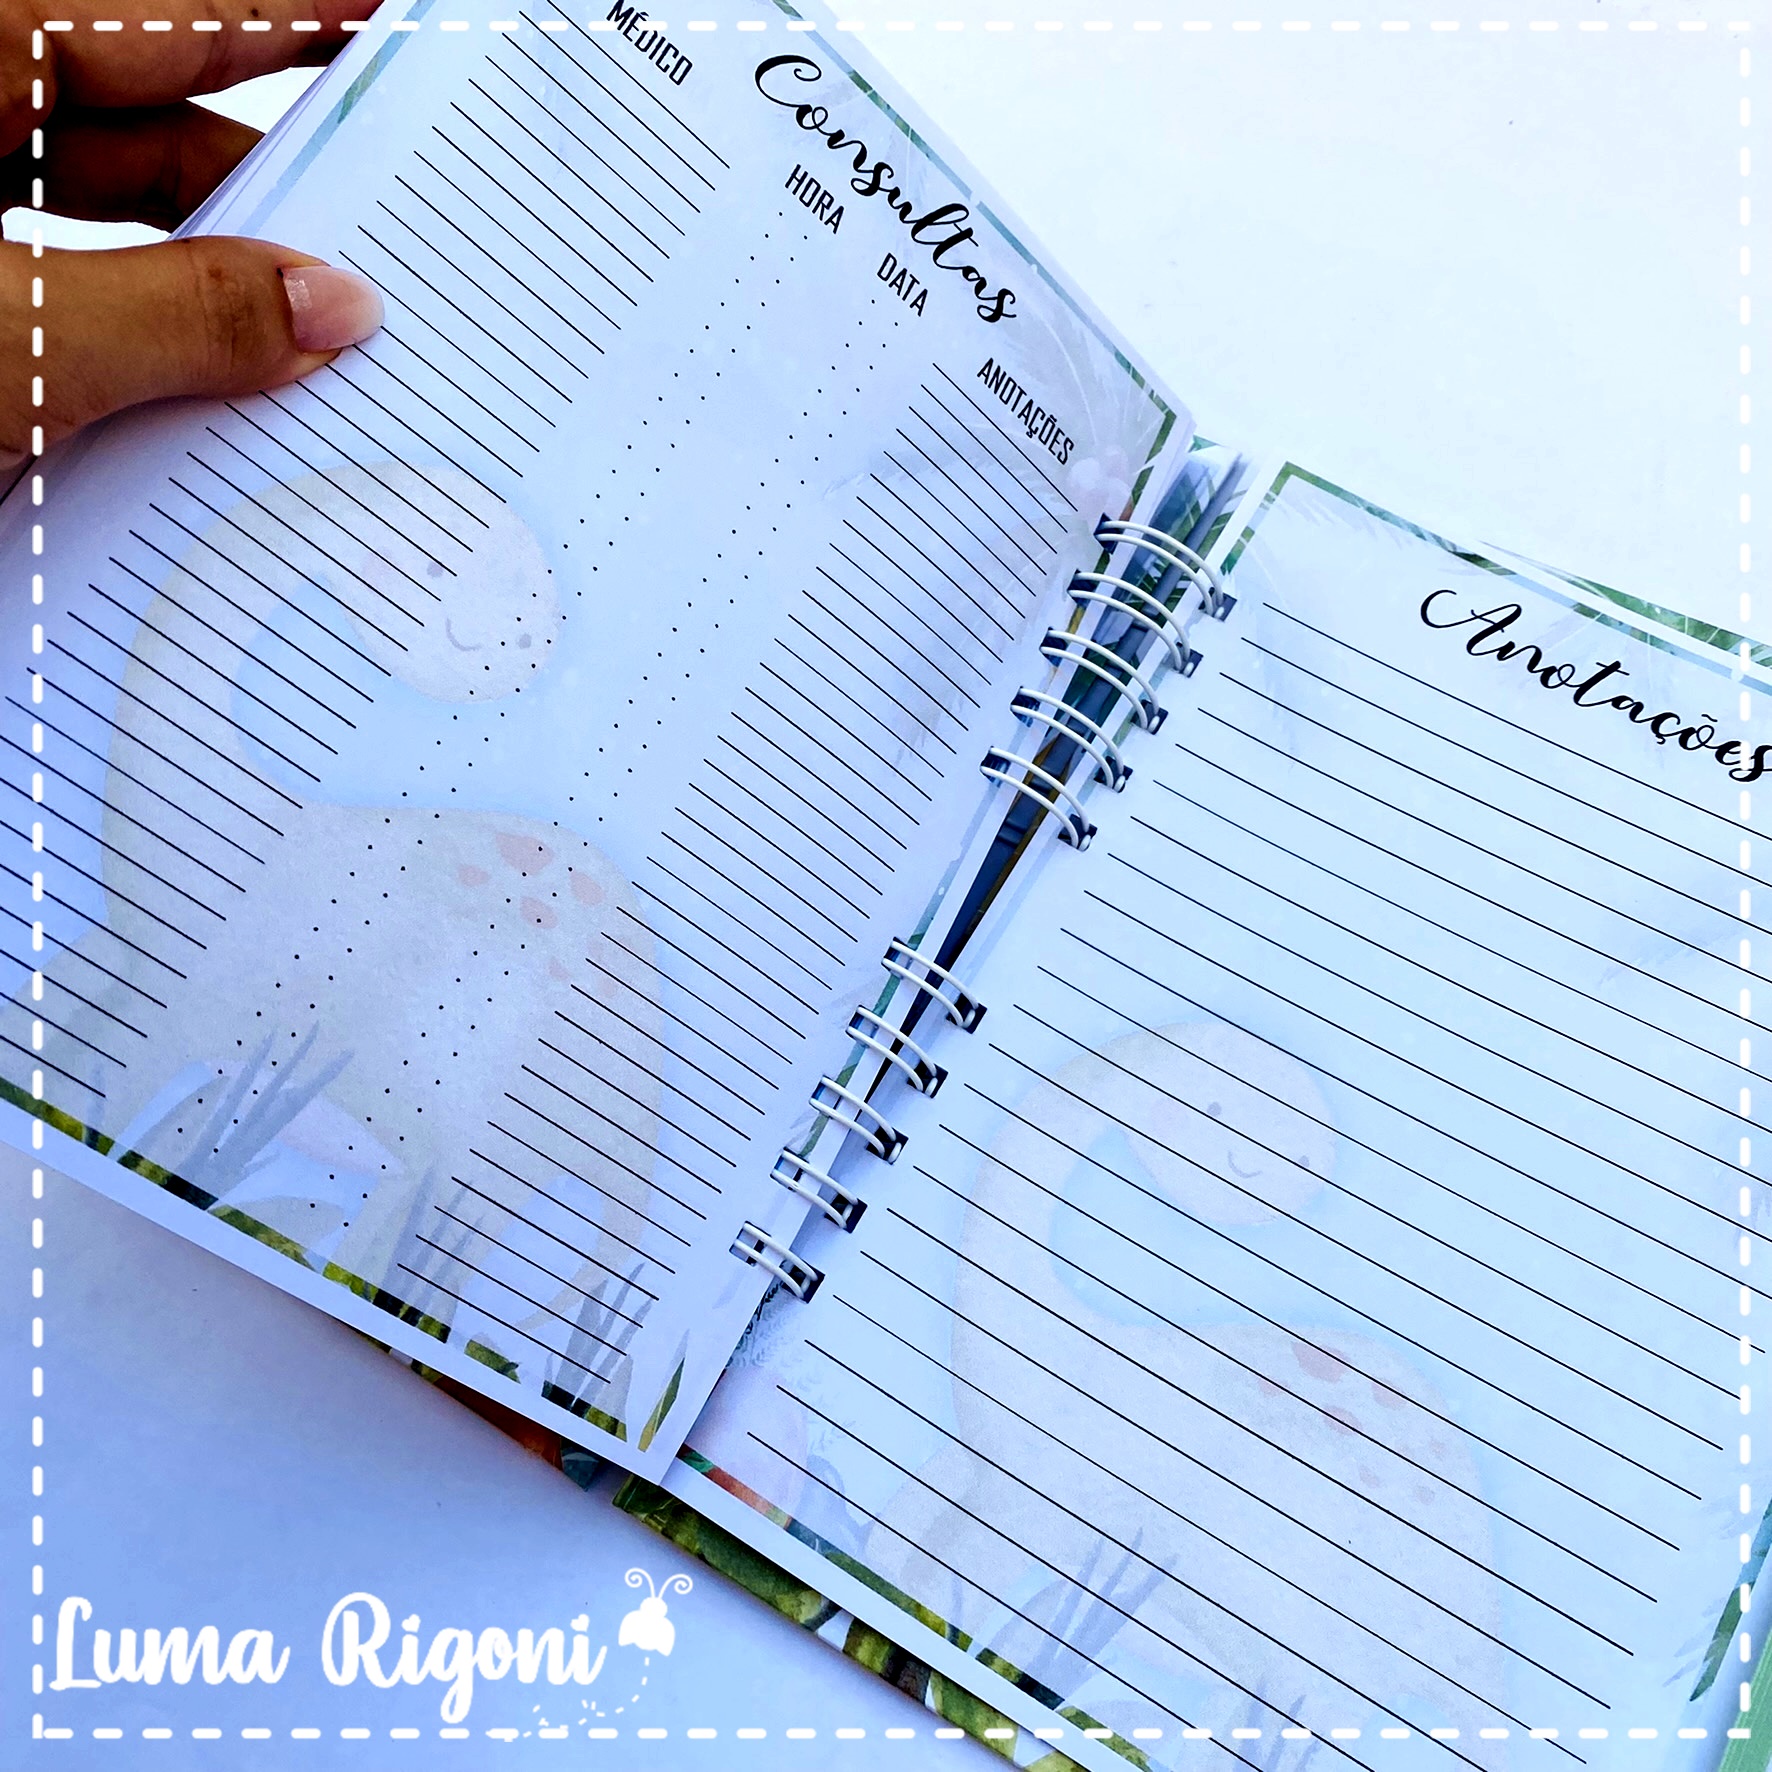 Consultas
MÉDICO
HORA
DATA
ANOTAÇÕES
Anotações
Luma Rigoni